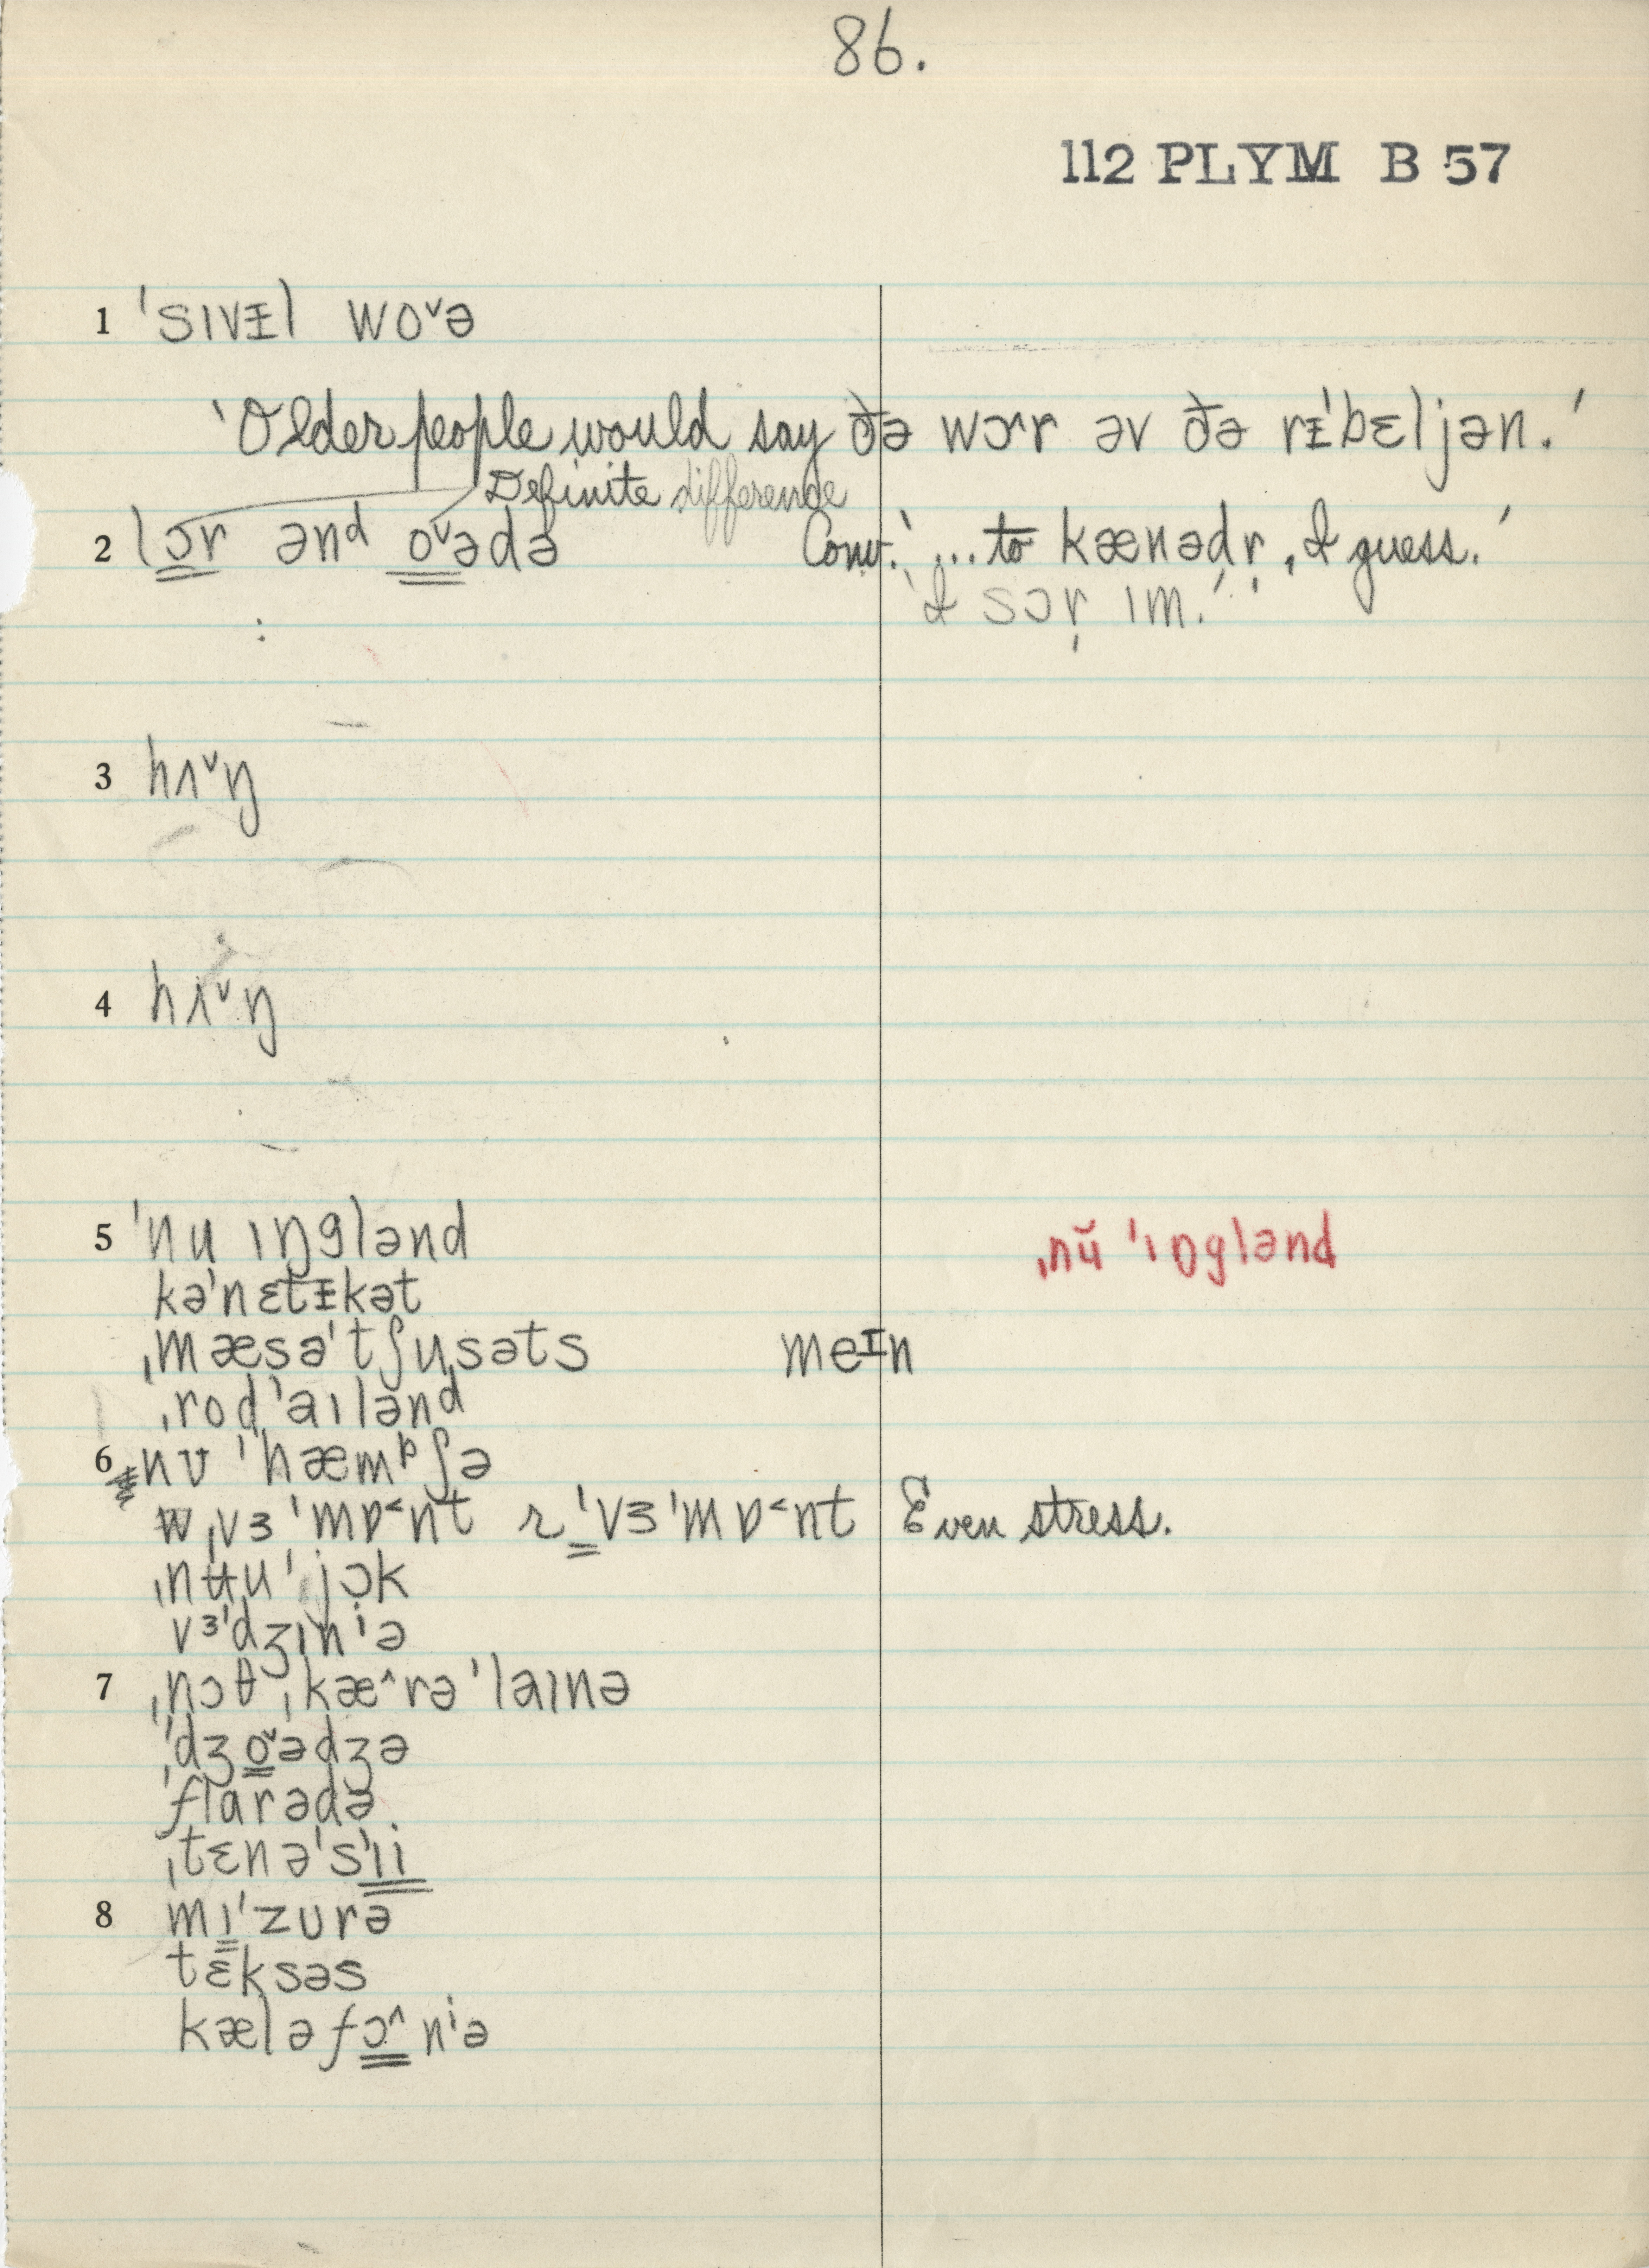 86.
112 PLYM B 57
1 ˈsɪvᵻl woˇə
‘Older people would say ðə wɔ˂r əv ðə rᵻˈbɛljən.’
Definite difference
2 lɔr ənd oˇədə Conv. ‘...to kænədr̩, I guess.’
‘I sɔr̩ ɪm.’
3 hʌˇŋ
4 hʌˇŋ
5 ˈnu ɪŋglənd ˌnŭ ˈɪŋglənd
kəˈnɛtᵻkət
ˌmæsəˈtʃusəts meɪn
ˌrodˈaɪlənd
6 nʊ ˈhæmᵖʃə
ˌvɜˈmɒ˂nt r ˈvɜˈmɒ˂nt Even stress.
ˌnʉuˈjɔk
vɜˈdʒɪnⁱə
7 ˌnɔθ ˌkæ^rəˈlaɪnə
ˈdʒoˇədʒə
ˈflarədə
ˌtɛnəˈsɪi
8 mɪˈzurə
tɛksəs
kæləfɔ^nⁱə